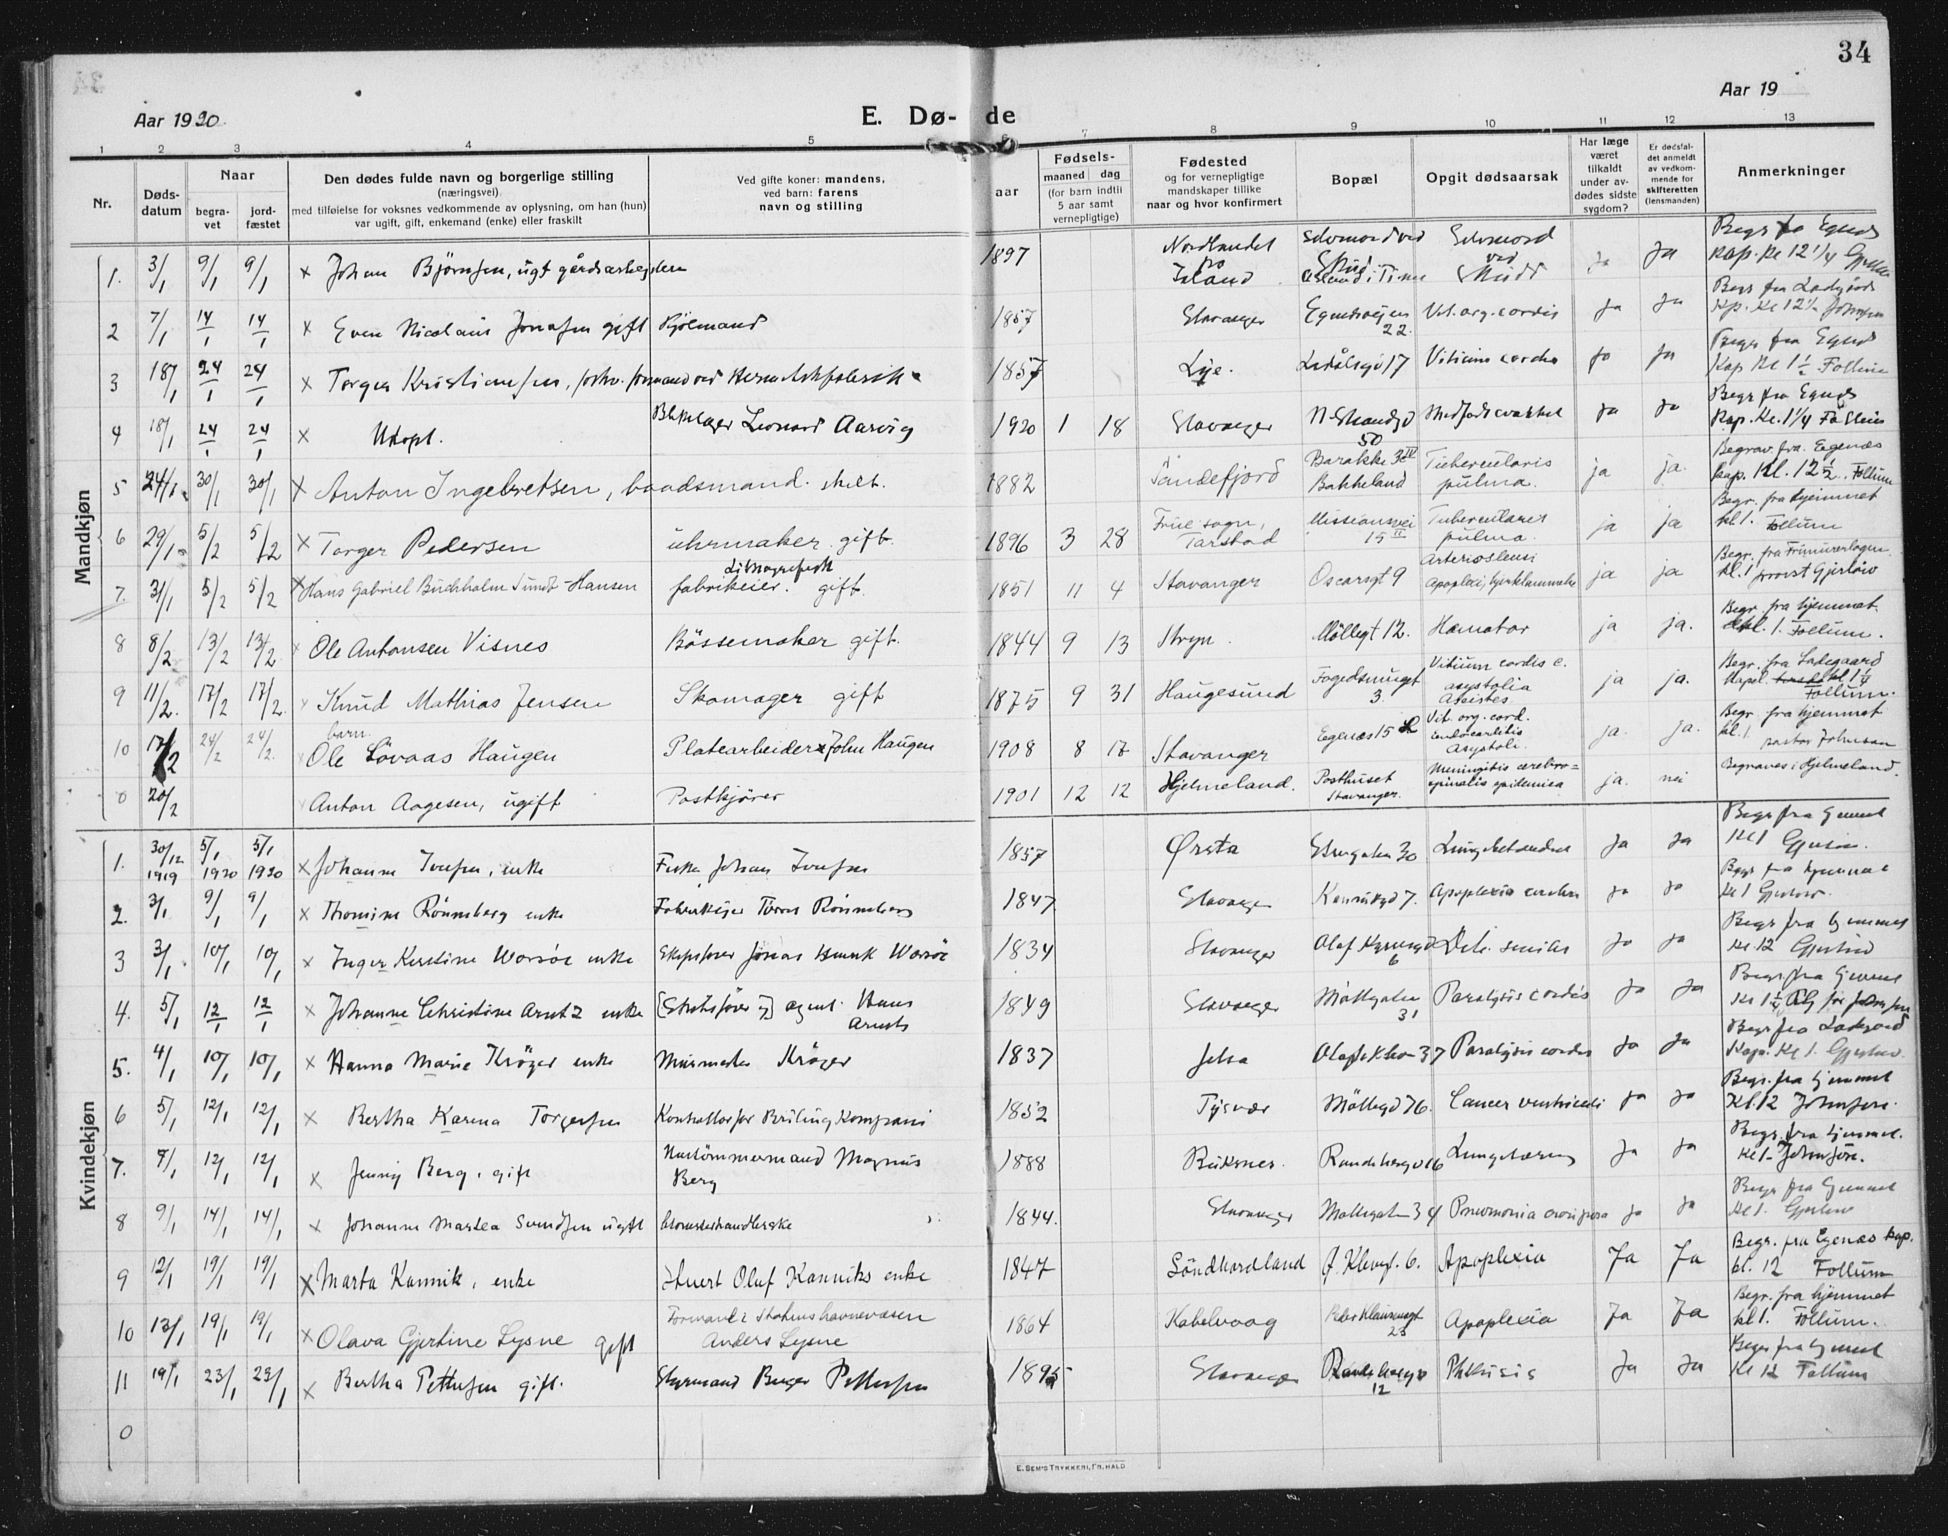 34
Aar 1920.
E. Dø- de
Aar 19
1 2 3 4 5 6 7 8 9 10 11 12 13
Nr.
Døds-
datum
Naar
begra-
vet
jord-
fæstet
Den dødes fulde navn og borgerlige stilling
(næringsvei)
med tilføielse for voksnes vedkommende av oplysning, om han (hun)
var ugift, gift, enkemand (enke) eller fraskilt
Ved gifte koner: mandens,
ved barn: farens
navn og stilling
aar
Fødsels-
maaned dag
(for barn indtil
5 aar samt
vernepligtige)
Fødested
og for vernepligtige
mandskaper tillike
naar og hvor konfirmert
Bopæl
Opgit dødsaarsak
Har læge
været
tilkaldt
under av-
dødes sidste
sygdom?
Er dødsfal-
det anmeldt
av vedkom-
mende for
skifteretten
(lensmanden)
Anmerkninger
Mandkjøn
1. 3/1 9/1 9/1 × Johan Bjørnsen, ugt gårdsarbeidere 1897 Nordlandet Selvmord ved Selvmord ved Skudd ja ja
2 7/1 14/1 14/1 × Even Nicolaus Jonassen gift 1857 Stavanger Egenesveien 22. Vit. org. cordis ja ja
3 18/1 24/1 24/1 × Torger Kristiansen, 1857 Lye. Ladålsgd 17 Vitium cordis ja ja
4 18/1 24/1 24/1 × Udøpt. Leonard Aarvig 1920 1 18 Stavanger N. Strandgd 50 Medfødt svakhet ja ja
5 24/1 30/1 30/1 × Anton Ingebretsen, baadsmand. skilt. 1882 Sandefjord Barakke Bakkeland Tuberculosis pulma. ja ja. Begrav. fra. Egenæs kap. kl. 12 1/2. Follum
6 29/1 5/2 5/2 × Torger Pedersen uhrmaker. gift. 1896 3 28 Missionsvei 15 II Tuberculoses pulma. ja ja Begr. fra hjemmet kl 1. Follum
7. 31/1 5/2 5/2 × Hans Gabriel Buchholm Sundt-Hansen Litografisk fabrikeier. gift. 1851 11 4 Stavanger Oscarsgt 9 Apoplexi, hjerteslammelse ja ja Begr. fra Frimurerlogen. kl. 1 provst Gjerløw
8 8/2 13/2 13/2 × Ole Antonsen Visnes Bössemaker gift. 1844 9 13 Stryn. Møllegt 12. ja ja. Begr. fra hjemmet kl. 1. Follum.
9 11/2. 17/2 17/2. × Knud Mathias Jensen Skomager gift 1875 9 31 Haugesund Fogedsmugt 3. Vitium cordis c. asystolia Ascites. ja ja. Begr. fra Ladegaard kapel. kl 1 1/4 Follum.
10 17/2 24/2 24/2. barn Ole Løvaas Haugen Platearbeider John Haugen 1908 8 17 Stavanger Egenæs 15 Vit. org. cord. Endocarditis asystoli. ja. ja. Begr. fra hjemmet kl. 1 pastor Johnsen
0 20/2 Anton Aagesen, ugift Postkjører 1901 12 12 Hjelmeland. Posthuset Stavanger. Meningitis cerebro= spinalis epidemica ja. nei Begraves i Hjelmeland.
Kvindekjøn
1. 30/12 1919 5/1 1920 5/1 1920 × Johanne Iversen, enke Fisker Johan Iversen 1857 Ørsta Storgaten 30 Lungebetændelse ja ja Begr fra hjemmet kl 1 Gjerløw.
2. 3/1 9/1 9/1 × Thomine Rønneberg enke Fabrikeier Rønneberg 1847 Stavanger Kannikgd 7. Apoplexia cerebri ja ja Begr fra hjemmet kl 1 Gjerløw.
3 3/1. 10/1 10/1 × Inger Kirstine Worsöe enke Skipsfører Jonas Henrik Worsöe 1834 Stavanger Olaf Kyrresgd 6 Deb. senilis ja ja Begr fra hjemmet kl 12 Gjerløw
4. 5/1 12/1 12/1 × Johanne Christine Arntz enke agent. Hans Arntz 1849 Stavanger Möllegaten 31 Paralysis cordis ja ja Begr. fra hjemmet
5. 4/1 10/1 10/1 × Hanna Marie Kröger enke Murmester Kröger 1837 Jelsa 37 Paralysis cordis ja ja Begr fra Ladegaard Kap. Kl 1. Gjerløw.
6 5/1 12/1 12/1 × Bertha Karena Torgersen 1852 Tysvær Möllegd 76. Cancer ventriculi ja ja Begr. fra hjemmet Kl. 12 Johnsen.
7. 9/1 12/1 12/1 × Jenny Berg, gift Hustømmermand Magnus Berg 1888 Buksnes. Randabergv 16 ja ja Begr. fra hjemmet. kl 1. Johnsen.
8 9/1 14/1 14/1 × Johanne Martea Svendsen ugift 1844. Stavanger Møllegaten 34 Pneumonia crouposa ja ja Begr fra hjemmet kl 1. Gjerløw
9 12/1 19/1 19/1 × Marta Kannik, enke Olaf Kanniks enke 1847 Söndhordland 6. Apoplexia Ja Ja Begr. fra Egenæs kap. kl. 12 Follum
10 13/1 19/1 19/1 × Olava Gjertine Lysne gift Formand i Stavns havnevæsen Anders Lysne 1864 Kabelvaag Peder Klausensgt 23 Apoplexia Ja Ja Begr. fra hjemmet kl 1. Follum.
11 19/1 23/1 23/1 × Bertha Pettersen gift. Styrmand Pettersen 1895 Stavanger 12 Phthisis Ja Ja Begr fra hjemmet Kl 12 Follum
0
E. SEM'S TRYKKERI, FR. HALD